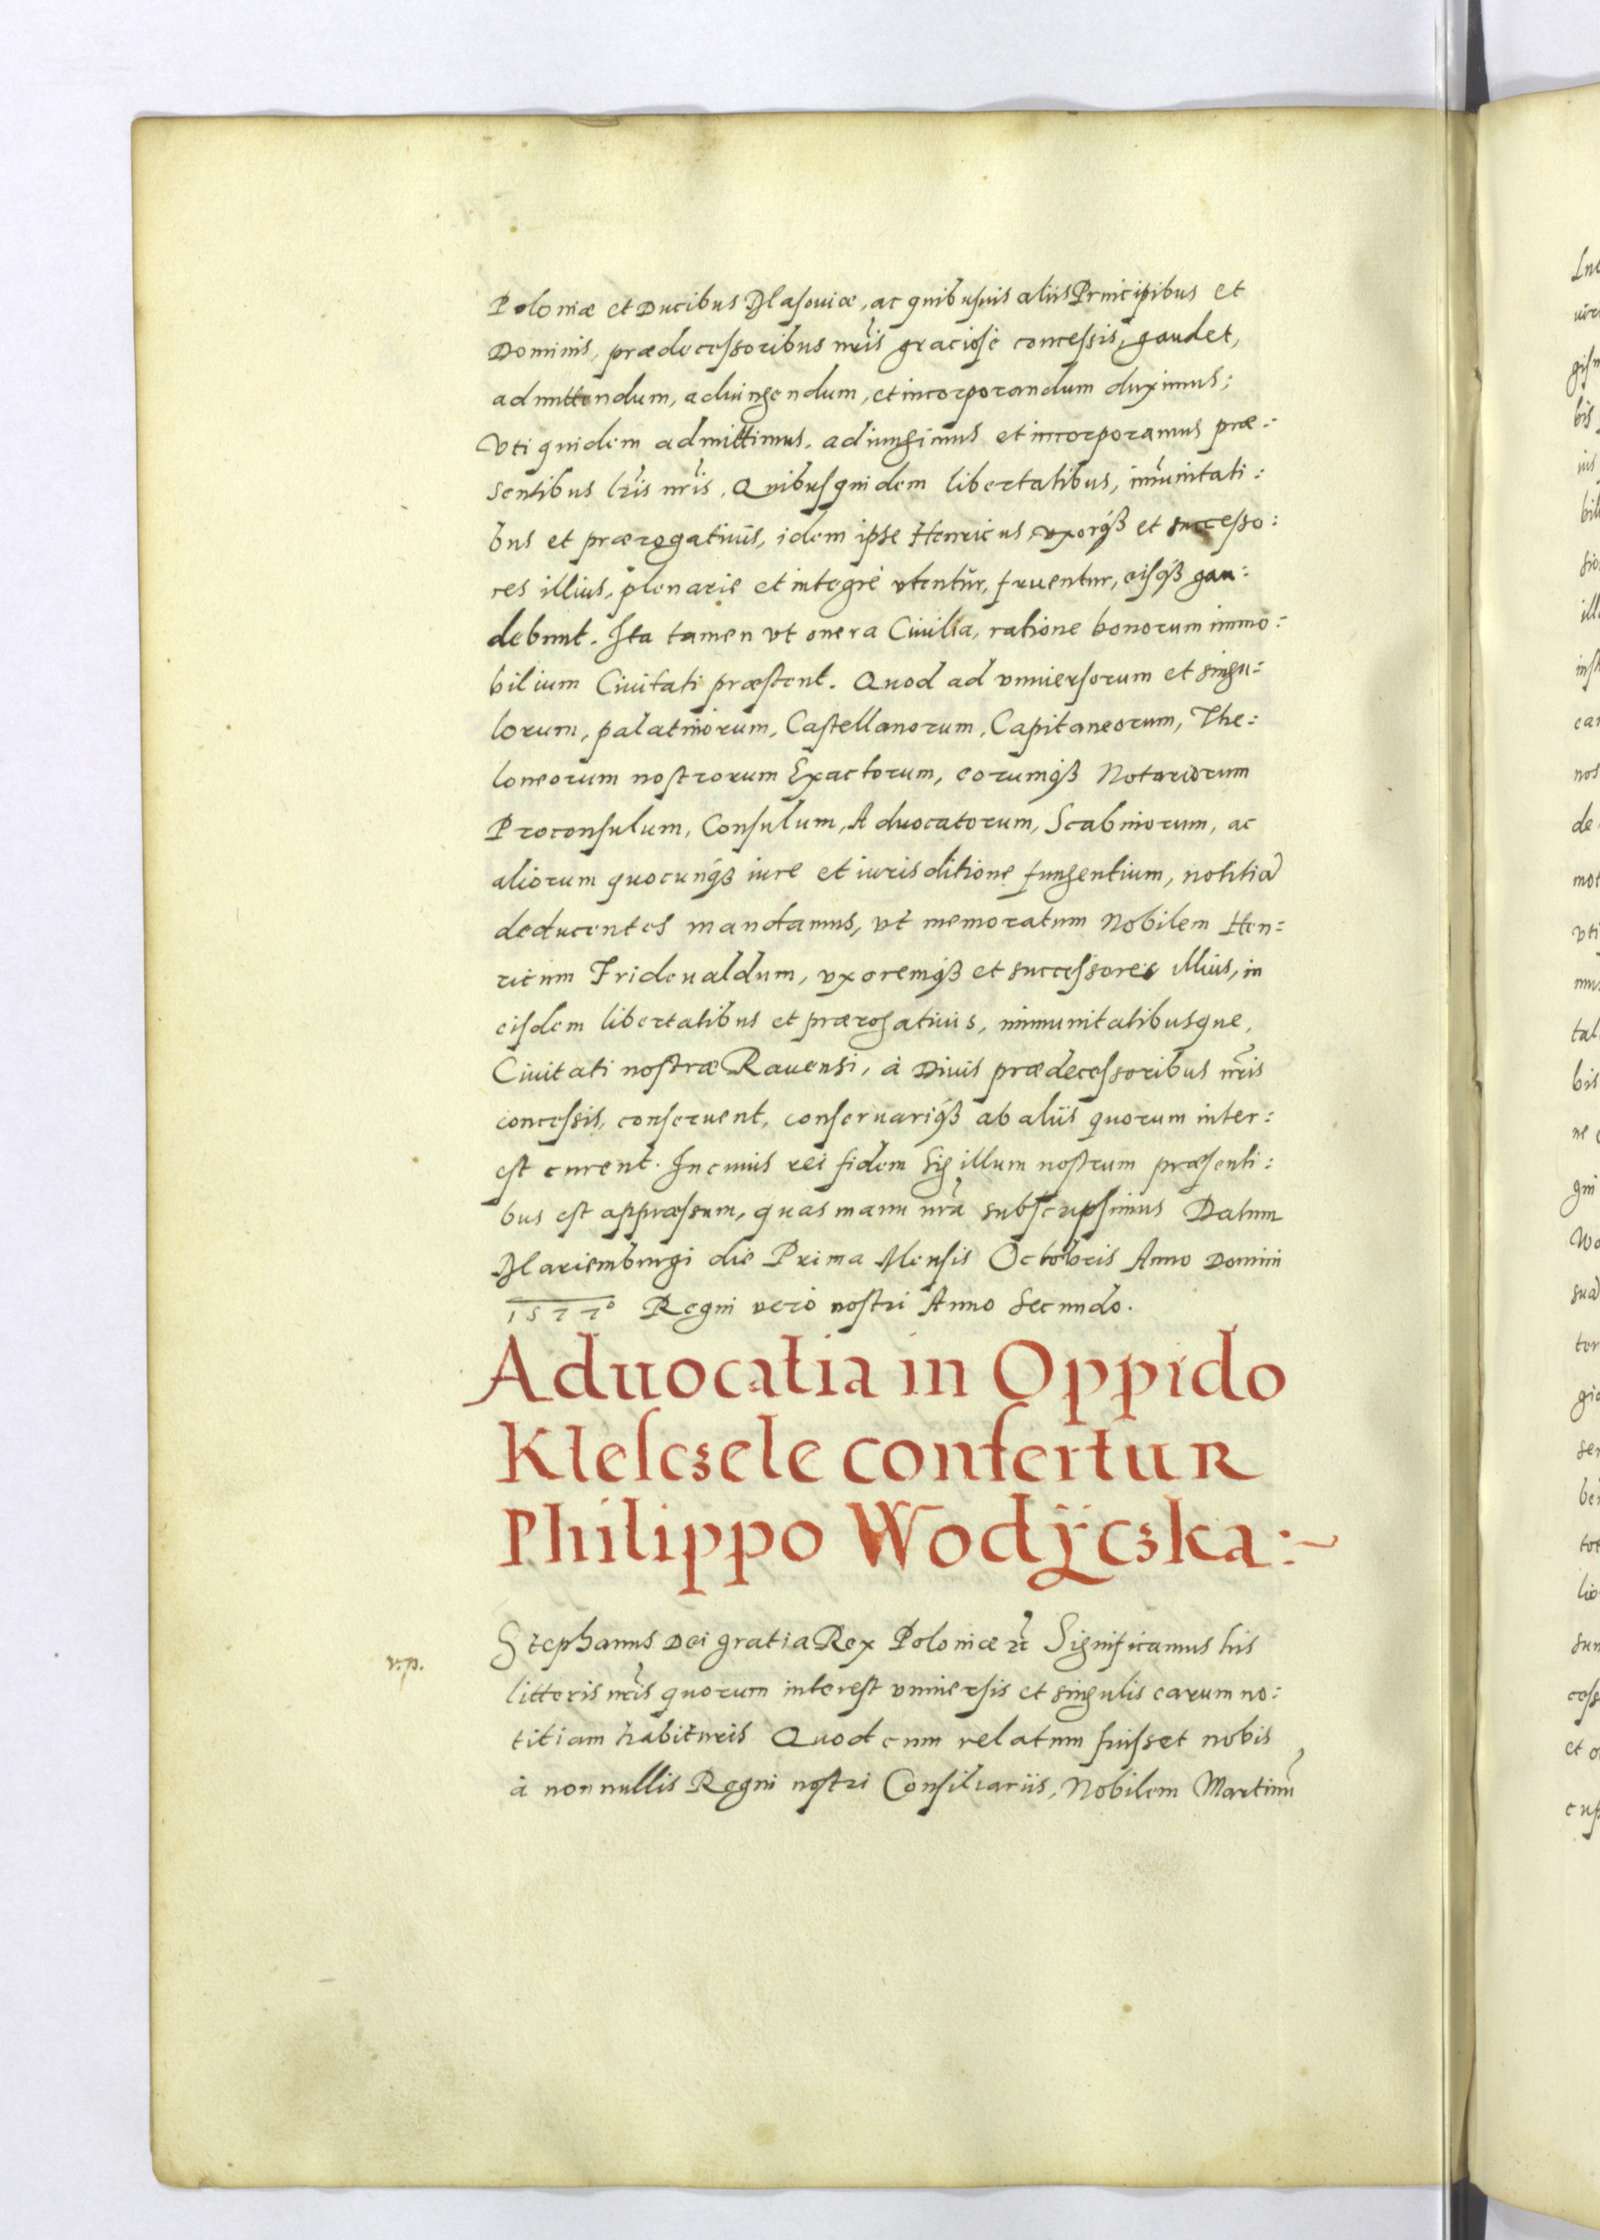 Poloniæ et Ducibus Masouiæ, ac quibusuis aliis Principibus et
Dominis, prædecessoribus nr̃is graciosè concessis, gaudet,
admittendum, adiungendum, et incorporandum duximus;
Vti quidem admittimus, adiungimus et incorporamus præ:
sentibus lr̃is nr̃is. Quibusquidem libertatibus, im̃unitati:
bus et prærogatiuis, idem ipse Henricus, vxorq́ꝫ et successo:
res illius, plenarie et integrè vtentur, fruentur, eisq́ꝫ gau:
debunt. Ita tamen vt onera Ciuilia, ratione bonorum immo:
bilium Ciuitati præstent. Quod ad vniuersorum et singu:
lorum, palatinorum, Castellanorum, Capitaneorum, The:
loneorum nostrorum Exactorum, eorumq́ꝫ Notariorum
Proconsulum, Consulum, Aduocatorum, Scabinorum, ac
aliorum quocunq́ꝫ iure et iurisditione fungentium, notitiã
deducentes mandamus, vt memoratum Nobilem Hen:
ricum Frideualdum, vxoremq́ꝫ et successores illius, in
eisdem libertatibus et prærogatiuis, immunitatibusque,
Ciuitati nostræ Rauensi, à Diuis prædecessoribus nr̃is
concessis, conseruent, conseruariq́ꝫ ab aliis quorum inter:
est curent. In cuius rei fidem Sigillum nostrum præsenti:
bus est appræssum, quas manu nr̃a subscripsimus Datum
Mariemburgi die Prima Mensis Octobris Anno Domini
1577º Regni verò nostri Anno Secundo.
Aduocatia in Oppido
Klesczele confertur
Philippo Wodÿczka:~
v.p.
Stephanus Dei gratia Rex Poloniæ ꝛc̃ Significamus his
litteris nr̃is quorum interest vniuersis et singulis earum no:
titiam habituris Quod cum relatum fuisset nobis
à nonnullis Regni nostri Consiliariis, Nobilem Martinũ